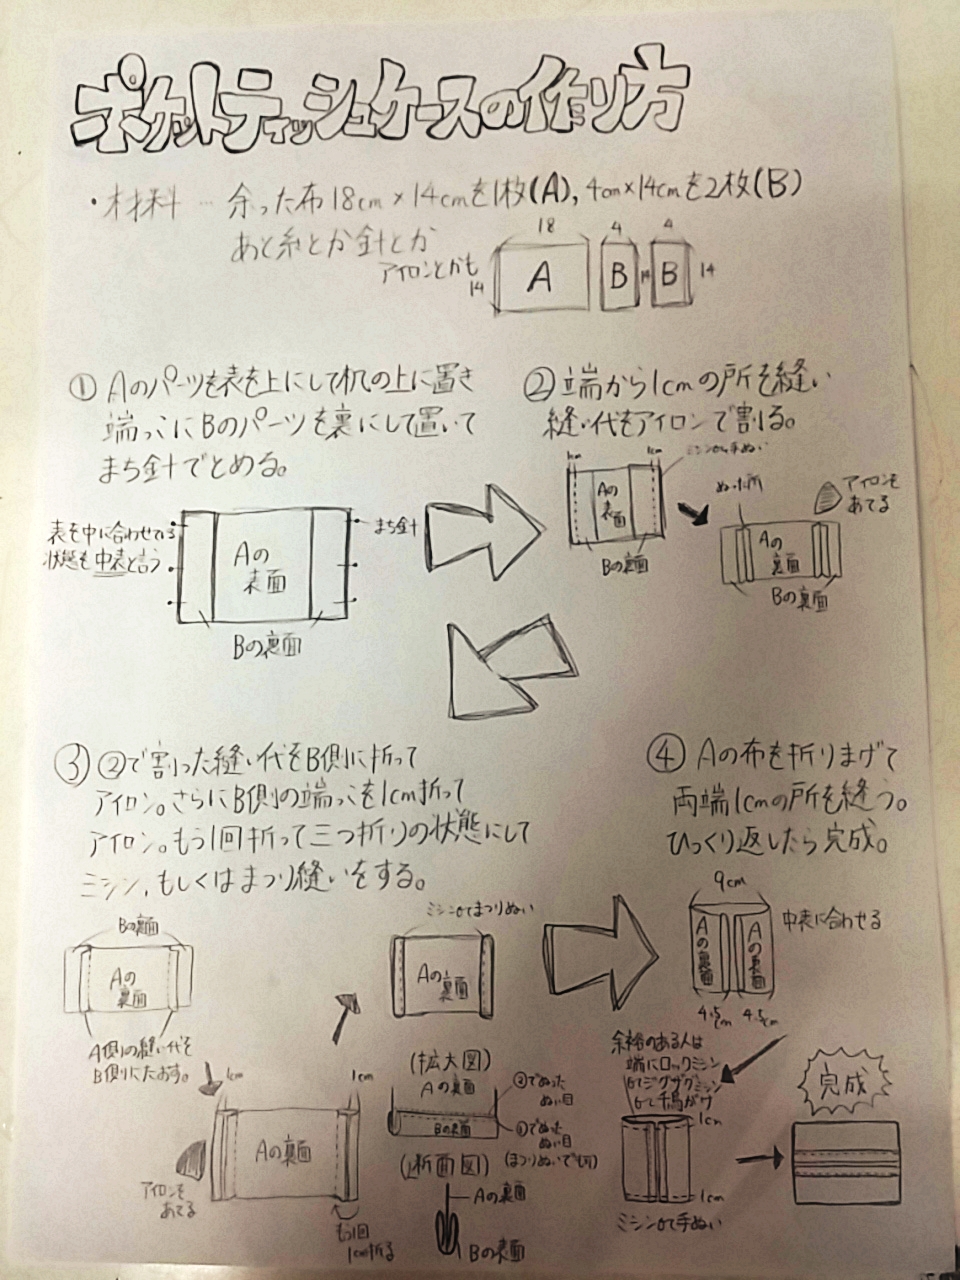 ポケットティッシュケースの作り方
・材料 … 余った布18cm×14cmを1枚(A), 4cm×14cmを2枚(B)
あと糸とか針とか
アイロンとかも
18
4
4
14
A
B
14
B
14
① Aのパーツを表を上にして机の上に置き
端っこにBのパーツを裏にして置いて
まち針でとめる。
表を中に合わせている
状態を中表と言う
Aの
表面
まち針
Bの裏面
②端から1cmの所を縫い
縫い代をアイロンで割る。
1cm
1cm
ミシンor手ぬい
Aの
表面
Bの裏面
ぬった所
アイロンを
あてる
Aの
裏面
Bの裏面
③ ②で割った縫い代をB側に折って
アイロン。さらにB側の端っこを1cm折って
アイロン。もう1回折って三つ折りの状態にして
ミシン、もしくはまつり縫いをする。
Bの裏面
Aの
裏面
A側の縫い代を
B側にたおす。
1cm
1cm
Aの裏面
アイロンを
あてる
もう1回
1cm折る
ミシンorまつりぬい
Aの
裏面
(拡大図)
Aの裏面
Bの表面
②でぬった
ぬい目
③でぬった
ぬい目
(まつりぬいでも可)
(断面図)
Aの裏面
Bの表面
④ Aの布を折りまげて
両端1cmの所を縫う。
ひっくり返したら完成。
9cm
Aの裏面
Aの裏面
中表に合わせる
4.5cm
4.5cm
余裕のある人は
端にロックミシン
orジグザグミシン
or千鳥がけ
1cm
1cm
ミシンor手ぬい
完成